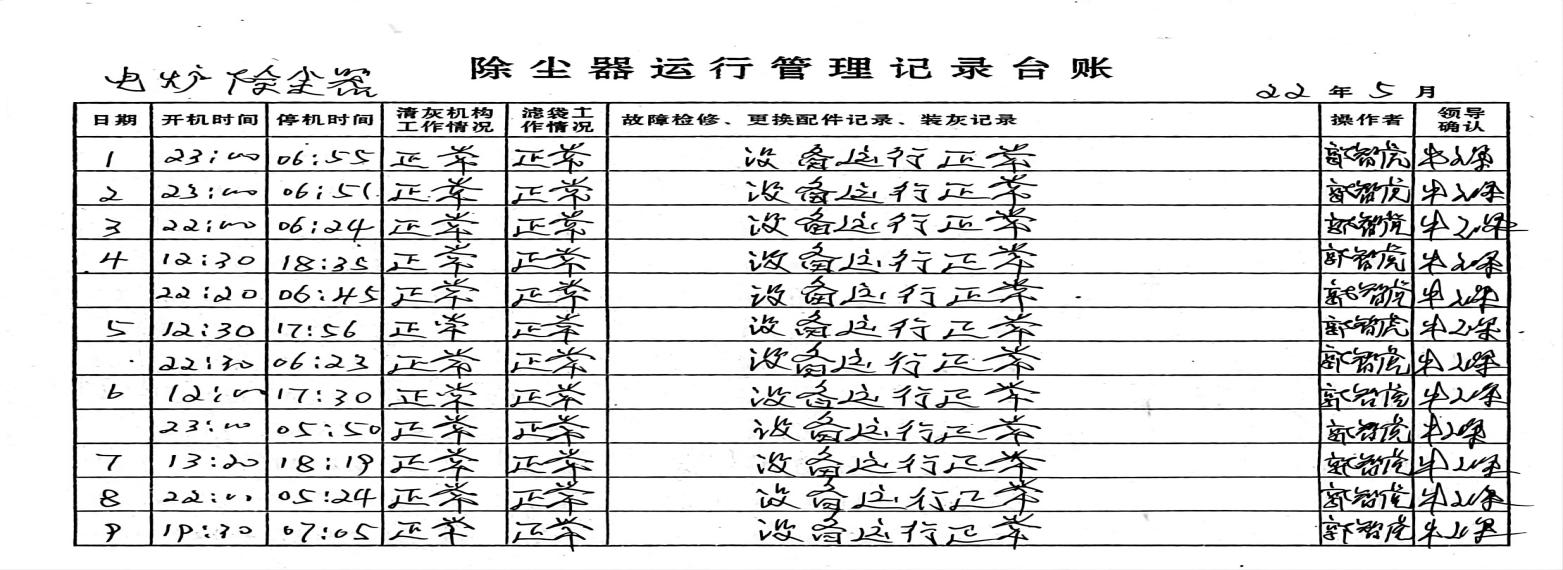 除尘器运行管理记录台账
电炉除尘器
22 年 5 月
日期 开机时间 停机时间 清灰机构工作情况 滤袋工作情况 故障检修、更换配件记录、装灰记录 操作者 领导确认
1 23:00 06:55 正常 正常 设备运行正常
2 23:00 06:51 正常 正常 设备运行正常
3 22:00 06:24 正常 正常 设备运行正常
4 12:30 18:35 正常 正常 设备运行正常
22:20 06:45 正常 正常 设备运行正常
5 12:30 17:56 正常 正常 设备运行正常
22:30 06:23 正常 正常 设备运行正常
6 12:00 17:30 正常 正常 设备运行正常
23:00 05:50 正常 正常 设备运行正常
7 13:20 18:19 正常 正常 设备运行正常
8 22:00 05:24 正常 正常 设备运行正常
9 19:30 07:05 正常 正常 设备运行正常